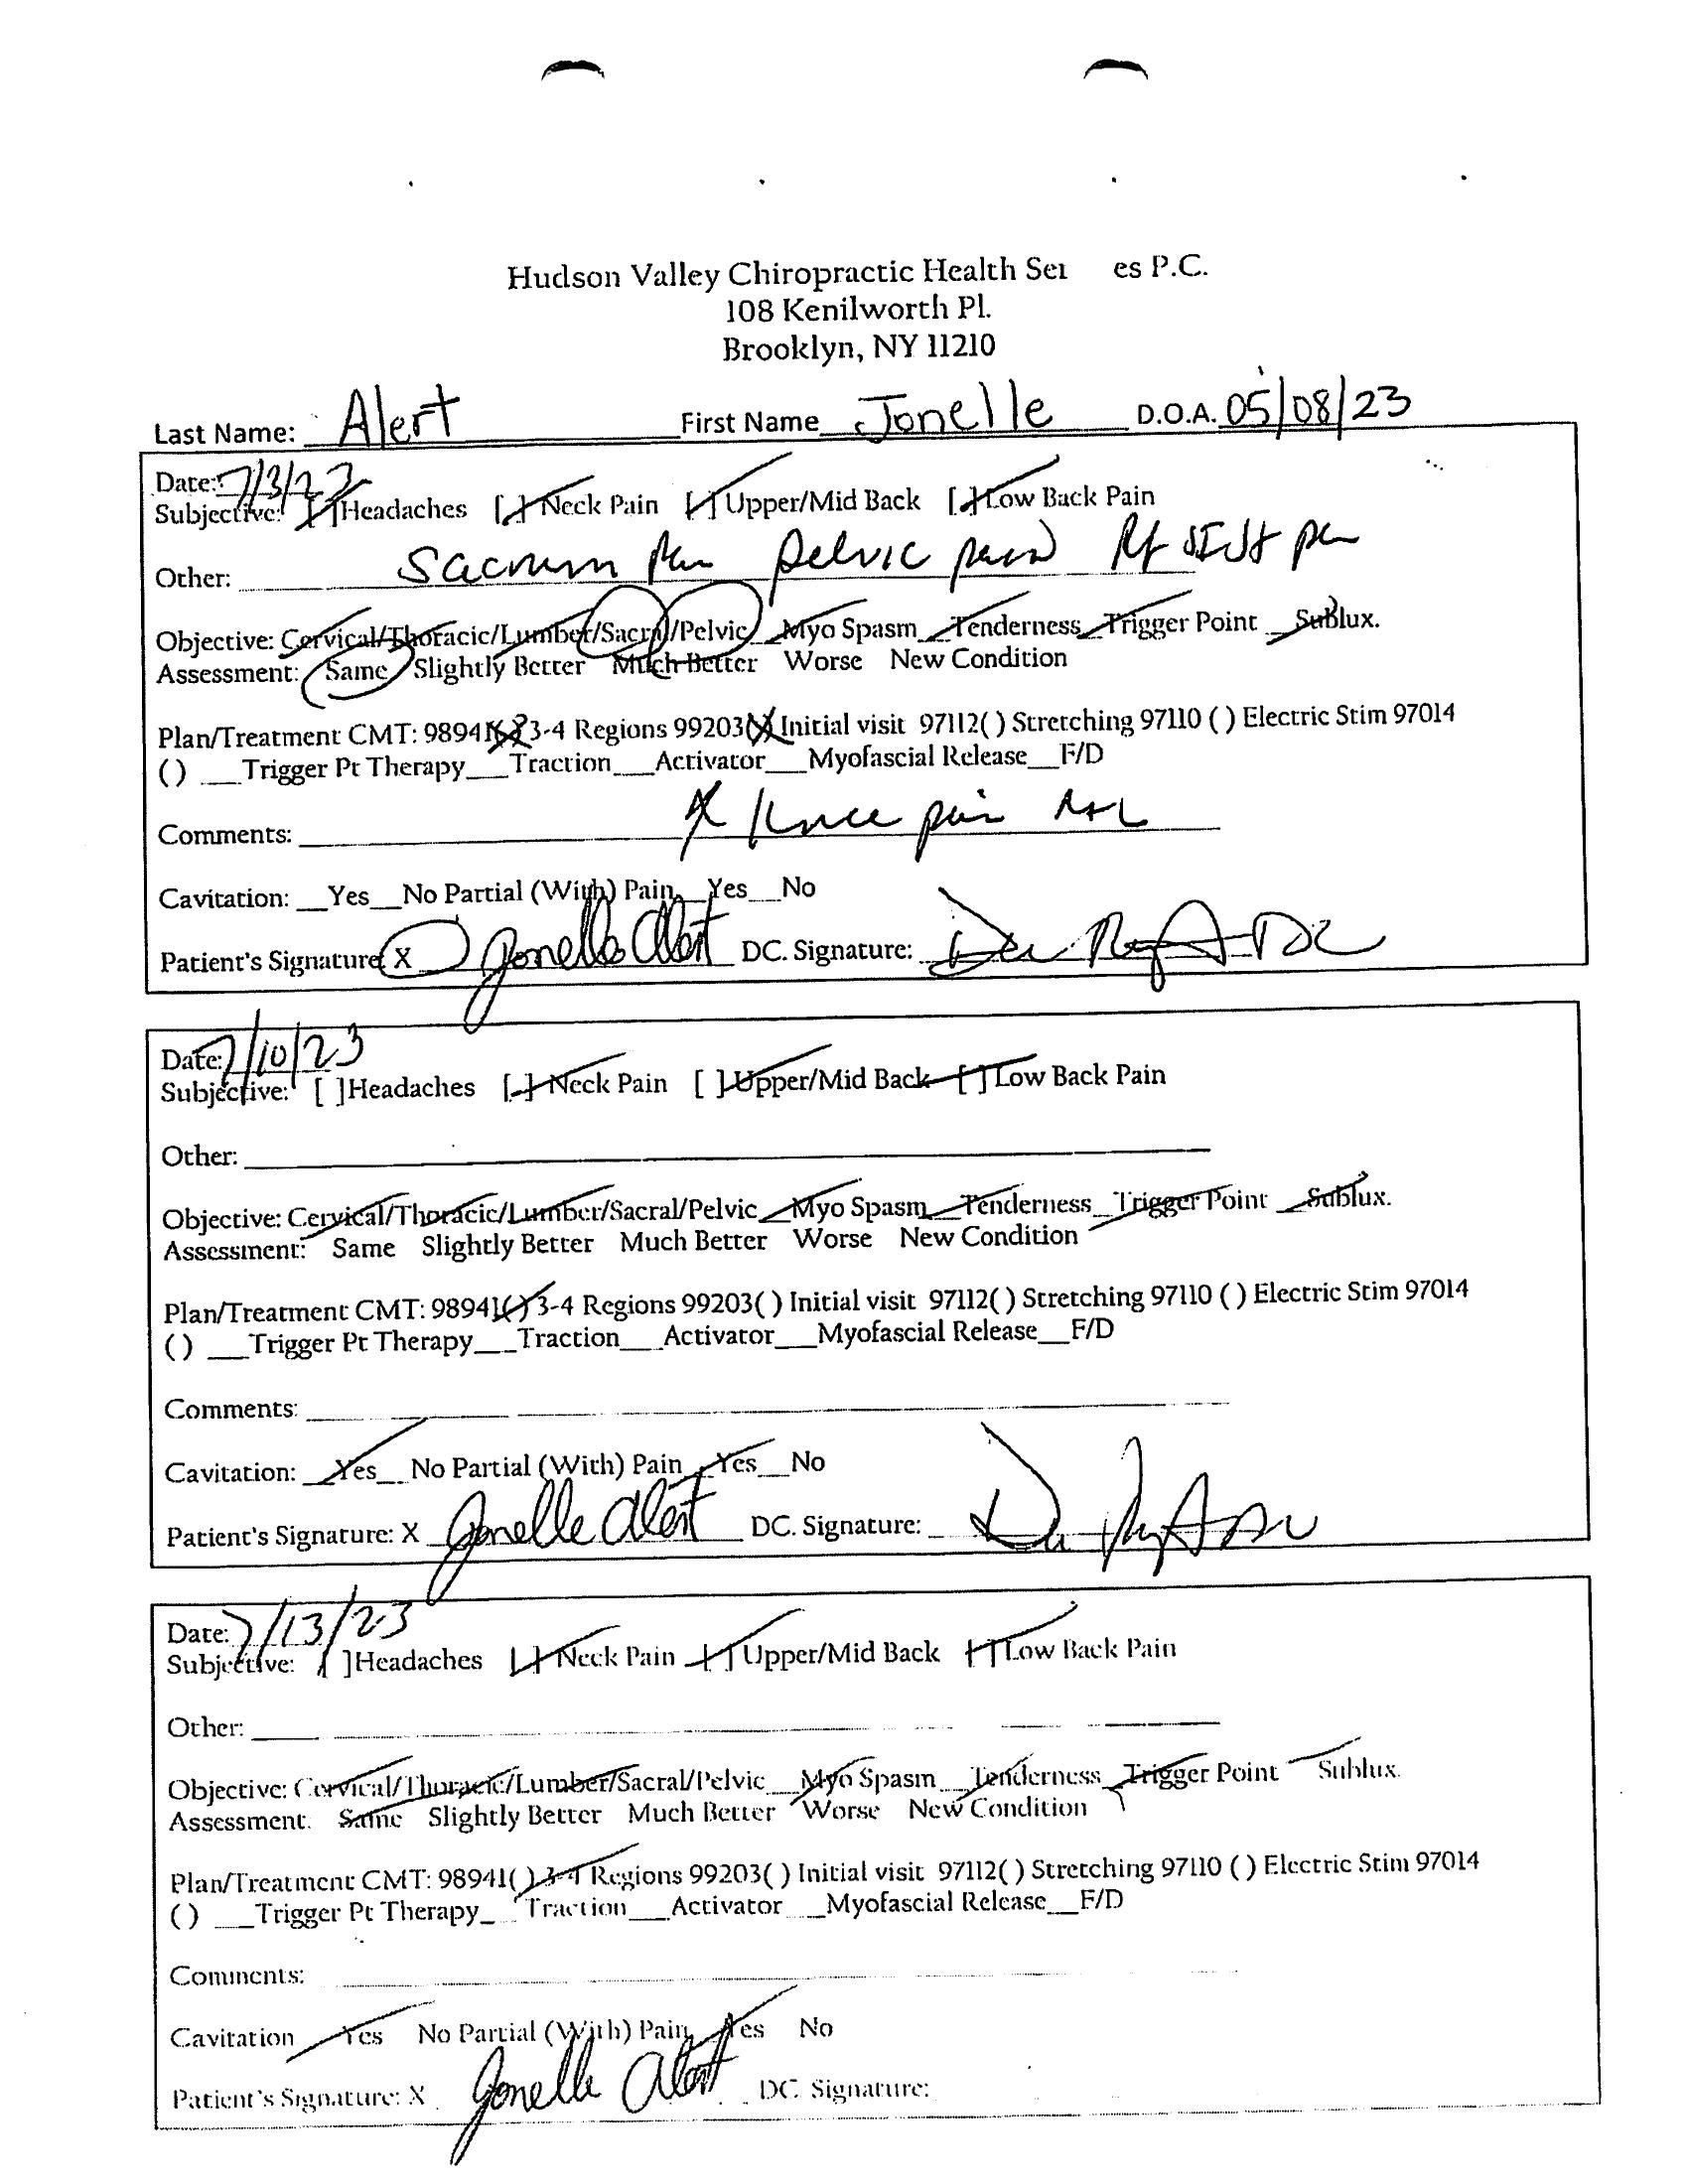 Hudson Valley Chiropractic Health Ser es P.C.
108 Kenilworth Pl.
Brooklyn, NY 11210
Last Name: Alert First Name Jonelle D.O.A. 05/08/23
Date: 7/3/23
Subjective: [ ]Headaches [ ] Neck Pain [ ] Upper/Mid Back [ ] Low Back Pain
Other: Sacrum pelvic pain Rt
Objective: Cervical/Thoracic/Lumber/Sacral/Pelvic__Myo Spasm__Tenderness__Trigger Point __Sublux.
Assessment: Same Slightly Better Much Better Worse New Condition
Plan/Treatment CMT: 98941( ) 3-4 Regions 99203(X) Initial visit 97112( ) Stretching 97110 ( ) Electric Stim 97014
( ) __Trigger Pt Therapy__Traction__Activator__Myofascial Release__F/D
Comments: Knee pain
Cavitation: __Yes__No Partial (With) Pain__Yes__No
Patient's Signature X Jonelle Alert DC. Signature:
Date: 7/10/23
Subjective: [ ]Headaches [ ] Neck Pain [ ] Upper/Mid Back [ ] Low Back Pain
Other:
Objective: Cervical/Thoracic/Lumber/Sacral/Pelvic__Myo Spasm__Tenderness__Trigger Point __Sublux.
Assessment: Same Slightly Better Much Better Worse New Condition
Plan/Treatment CMT: 98941( ) 3-4 Regions 99203( ) Initial visit 97112( ) Stretching 97110 ( ) Electric Stim 97014
( ) __Trigger Pt Therapy__Traction__Activator__Myofascial Release__F/D
Comments:
Cavitation: __Yes__No Partial (With) Pain__Yes__No
Patient's Signature: X Jonelle Alert DC. Signature:
Date: 7/13/23
Subjective: [ ]Headaches [ ] Neck Pain [ ] Upper/Mid Back [ ] Low Back Pain
Other:
Objective: Cervical/Thoracic/Lumber/Sacral/Pelvic__Myo Spasm__Tenderness__Trigger Point Sublux.
Assessment. Same Slightly Better Much Better Worse New Condition
Plan/Treatment CMT: 98941( ) 3-4 Regions 99203( ) Initial visit 97112( ) Stretching 97110 ( ) Electric Stim 97014
( ) __Trigger Pt Therapy__Traction__Activator__Myofascial Release__F/D
Comments:
Cavitation Yes No Partial (With) Pain Yes No
Patient's Signature: X Jonelle Alert DC. Signature: